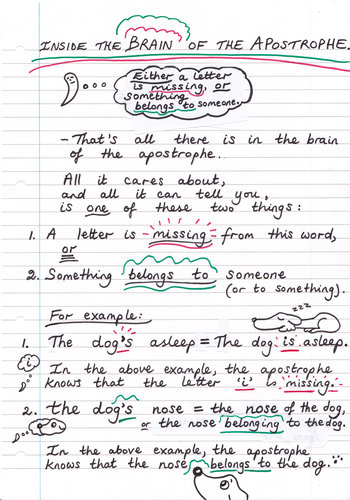 INSIDE THE BRAIN OF THE APOSTROPHE.
Either a letter
is missing, or
something
belongs to someone.
- That's all there is in the brain
of the apostrophe.
All it cares about,
and all it can tell you,
is one of these two things:
1. A letter is missing from this word,
or
2. Something belongs to someone
(or to something).
For example:
zzz
1. The dog's asleep = The dog is asleep.
i
In the above example, the apostrophe
knows that the letter 'i' is missing.
2. the dog's nose = the nose of the dog,
or the nose belonging to the dog.
In the above example, the apostrophe
knows that the nose belongs to the dog.